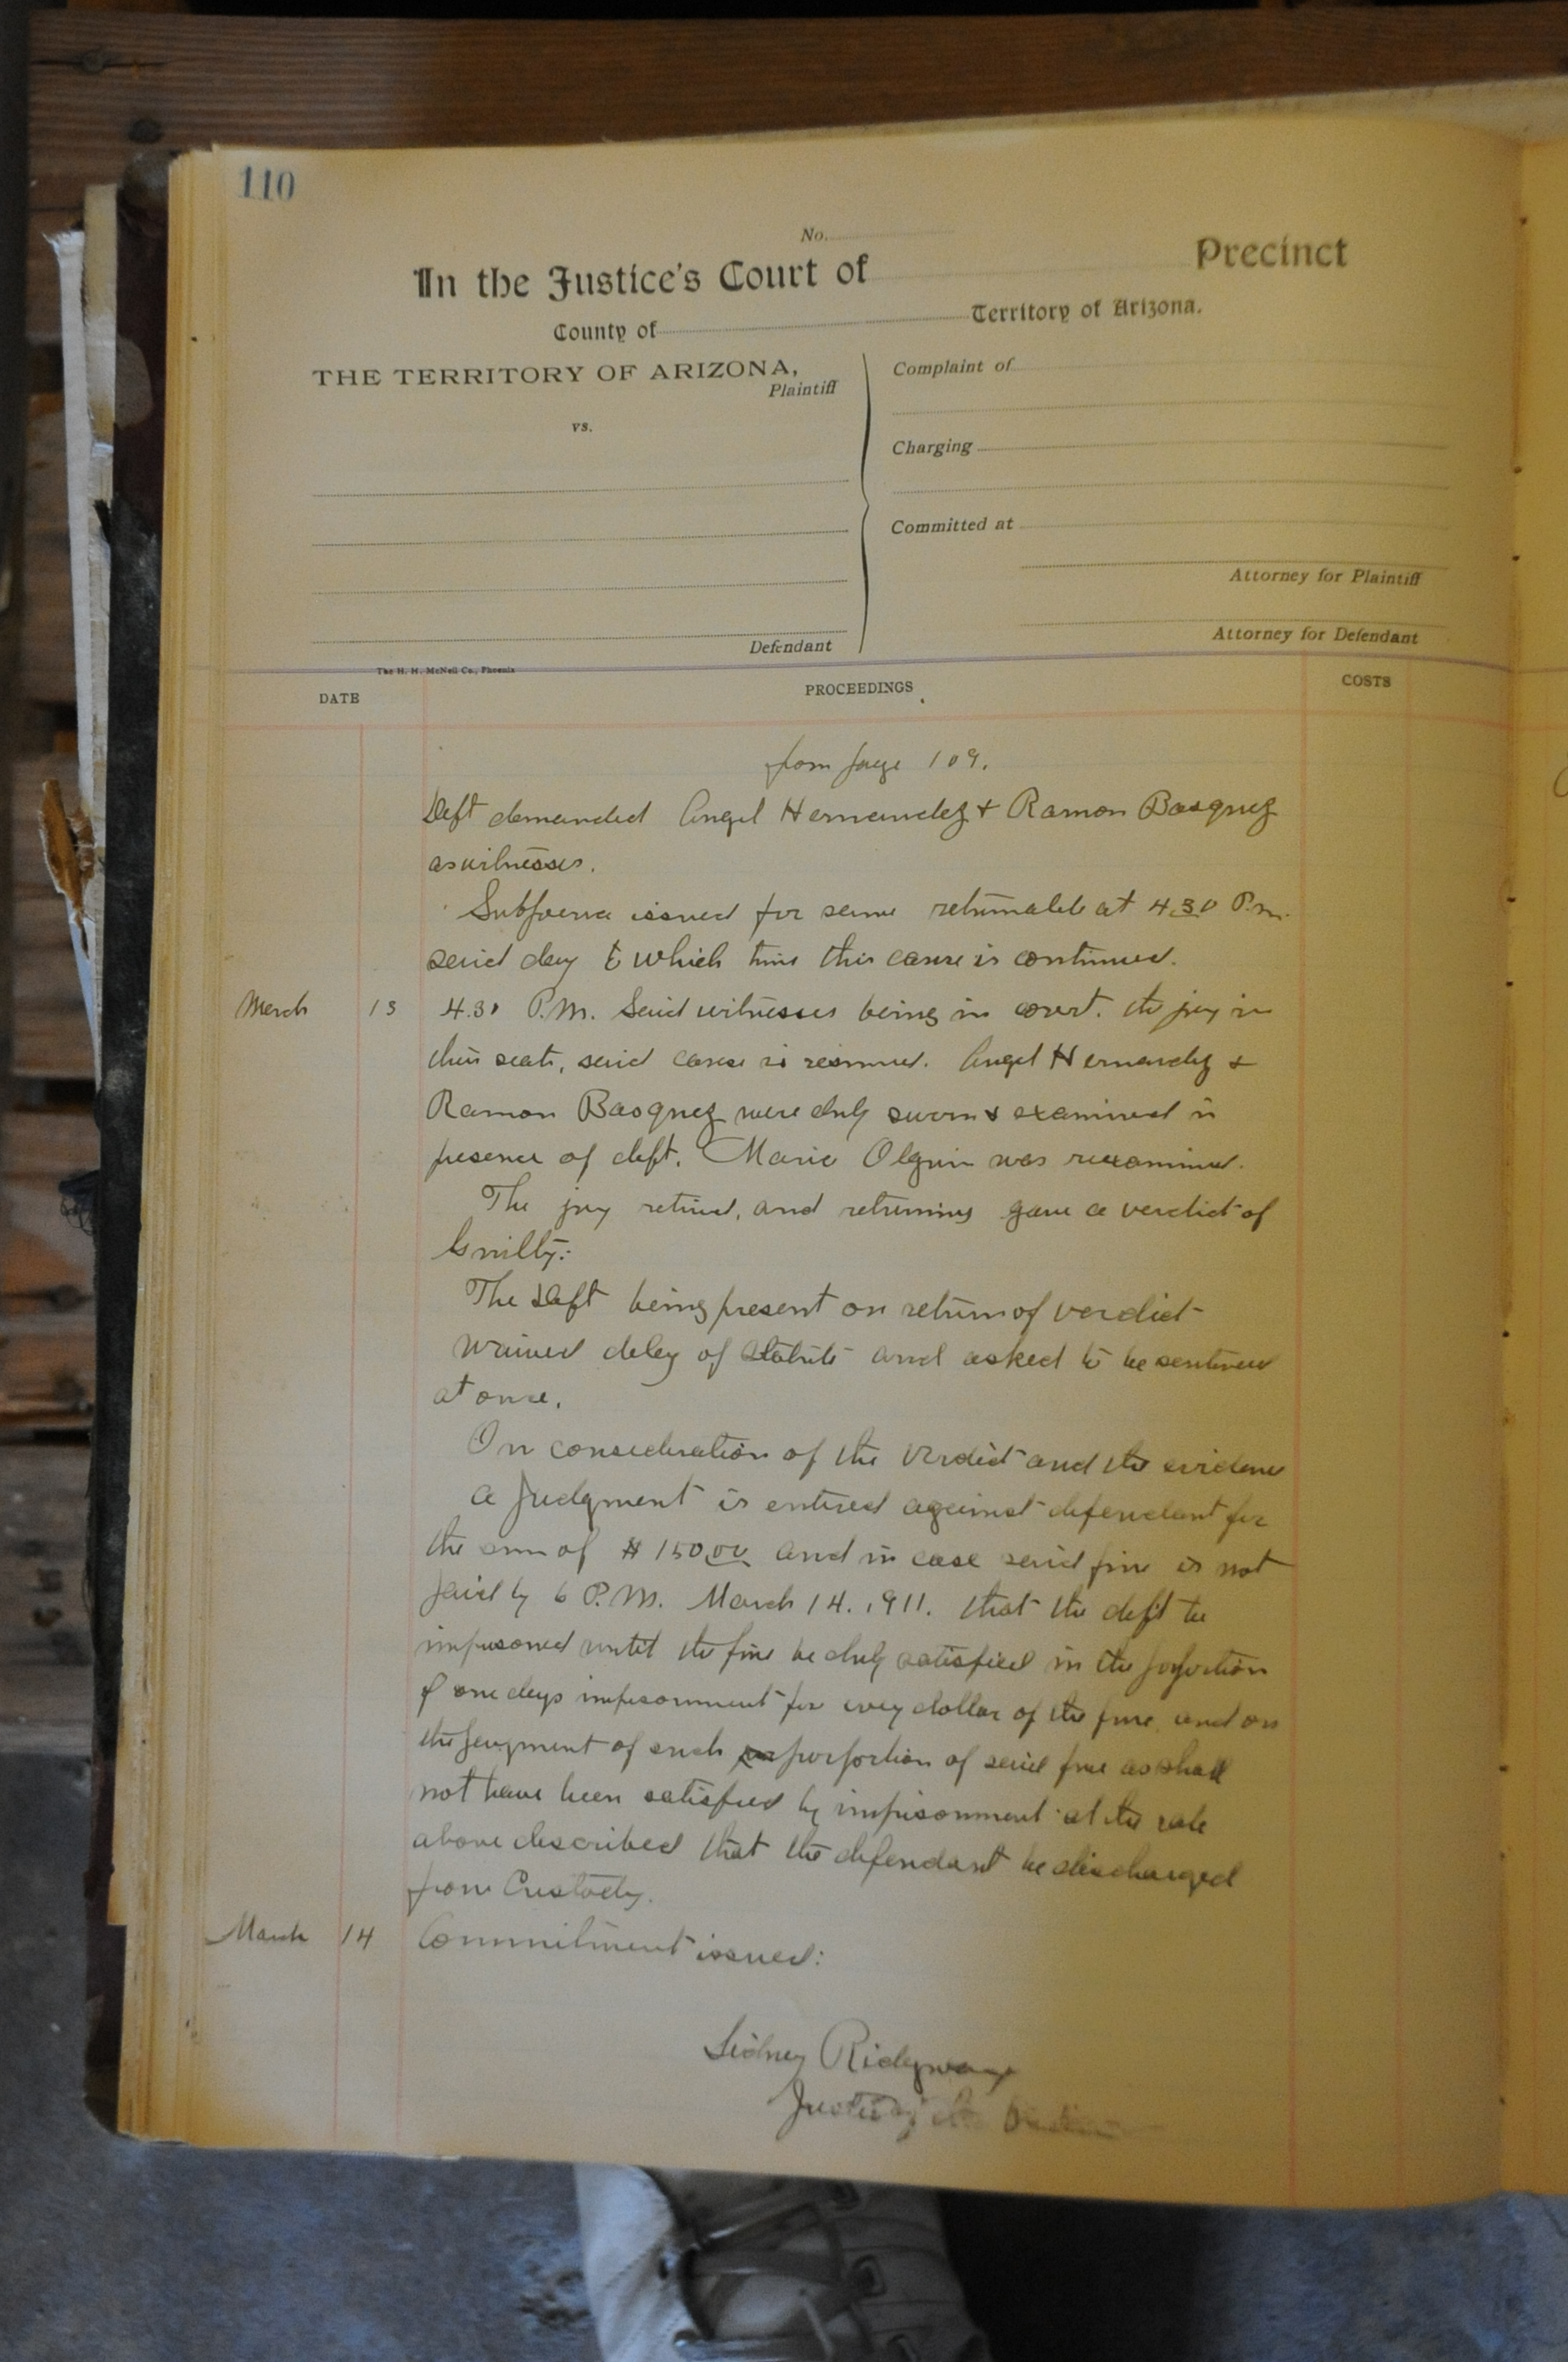 110
No.
In the Justice's Court of Precinct
County of Territory of Arizona.
THE TERRITORY OF ARIZONA,
Plaintiff
vs.
Defendant
Complaint of
Charging
Committed at
Attorney for Plaintiff
Attorney for Defendant
The H. H. McNeil Co., Phoenix
DATE PROCEEDINGS COSTS
from page 109.
Deft demanded Angel Hernandez & Ramon Basquez
as witnesses.
Subpoena issued for same returnable at 4.30 P.m.
said day to which time this cause is continued.
March 13 4.30 P.M. Said witnesses being in court. the jury in
their seats, said cause is resumed. Angel Hernandez &
Ramon Basquez were duly sworn & examined in
presence of deft. Maria Olguin was reexamined.
The jury retired, and returning gave a verdict of
Guilty:
The Deft being present on return of verdict
waived delay of statute and asked to be sentenced
at once.
On consideration of the verdict and the evidence
a judgment is entered against defendant for
the sum of $150.00 and in case said fine is not
paid by 6 P.M. March 14. 1911. that the deft be
imprisoned until the fine be duly satisfied in the proportion
of one days imprisonment for every dollar of the fine and on
the payment of such proportion of said fine as shall
not have been satisfied by imprisonment at the rate
above described that the defendant be discharged
from Custody.
March 14 Commitment issued:
Sidney Ridgway
Justice of the